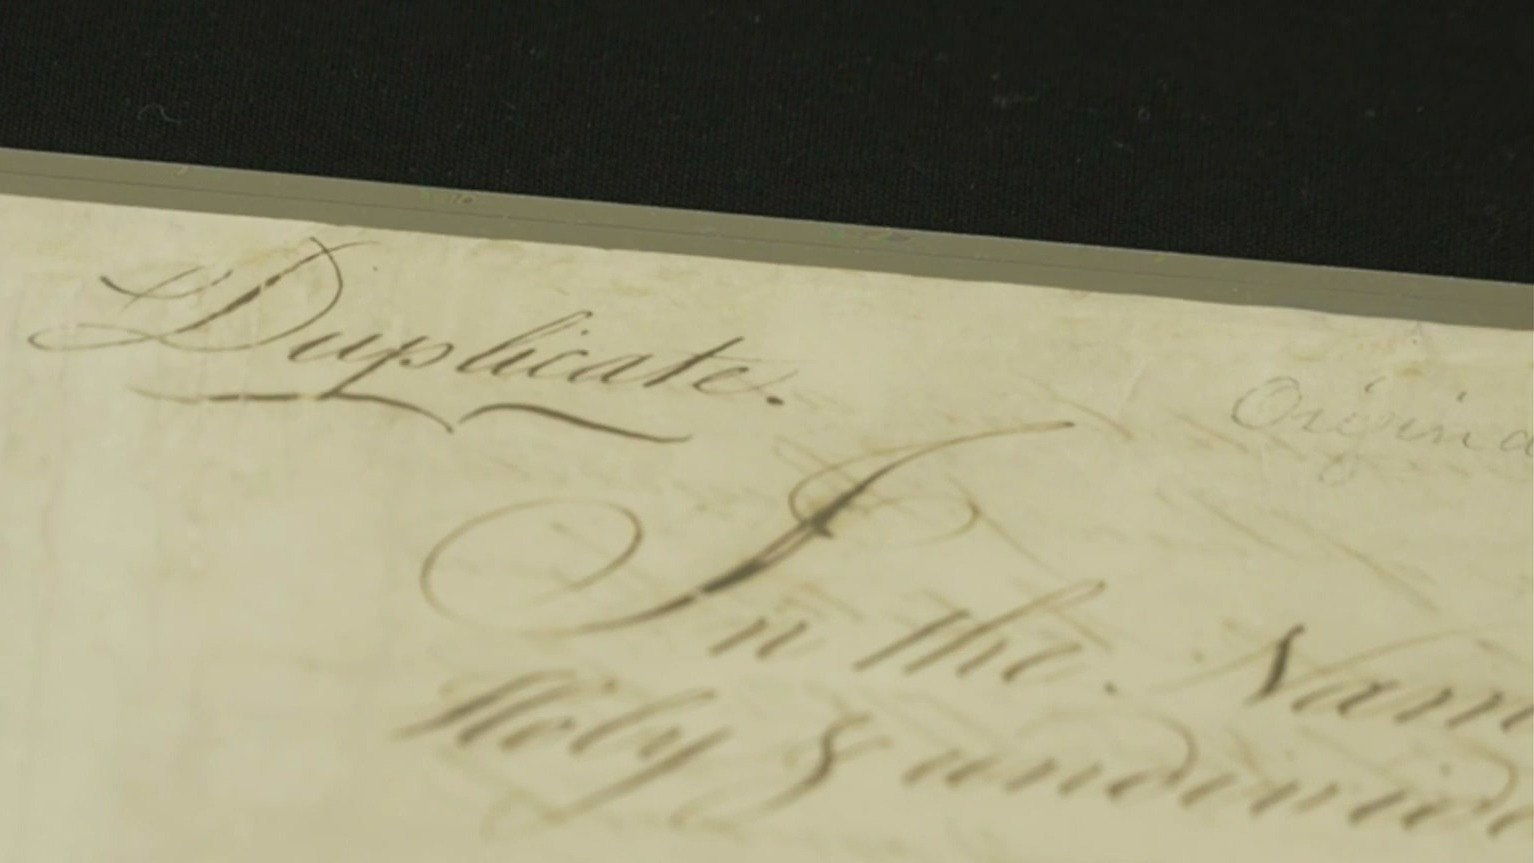 Duplicate.
Origina
In the Nam
Holy & undivide